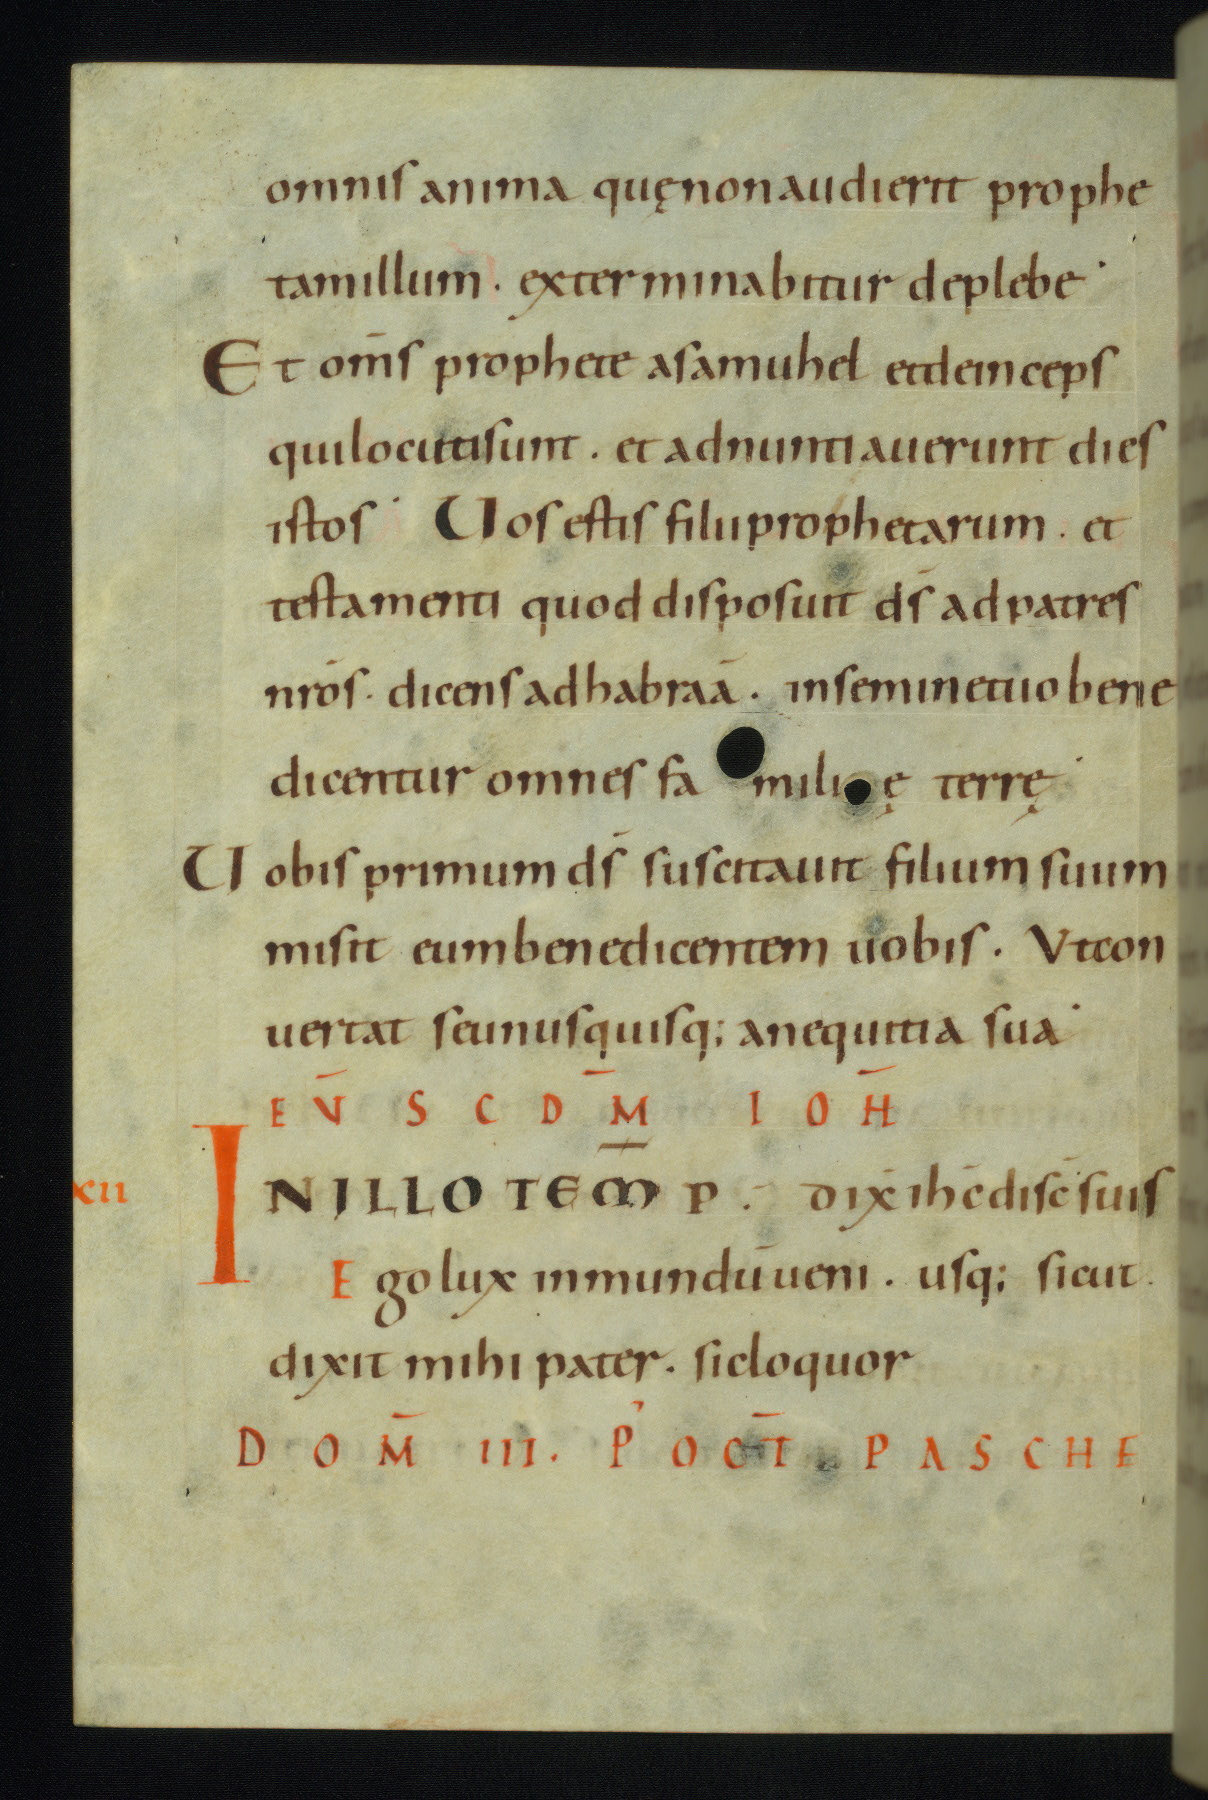 omnis anima quę non audierit prophe
tam illum · exterminabitur de plebe ·
Et om̄s prophete a samuhel et deinceps
qui locuti sunt · et adnuntiauerunt dies
istos · Uos estis filii prophetarum · et
testamenti quod disposuit ds̄ ad patres
nrōs · dicens ad habraā · in semine tuo bene
dicentur omnes familię terrę ·
Uobis primum ds̄ suscitauit filium suum
misit eum benedicentem uobis · Vt con
uertat se unusquisq; a nequitia sua ·
EṼ SCD̄M IOH̄
xii IN ILLO TEM̄P · dix̄ ihc̄ disc̄ suis
Ego lux in mundū ueni · usq; sicut ·
dixit mihi pater · sic loquor
DOM̄ III · P' OCT̄ PASCHE